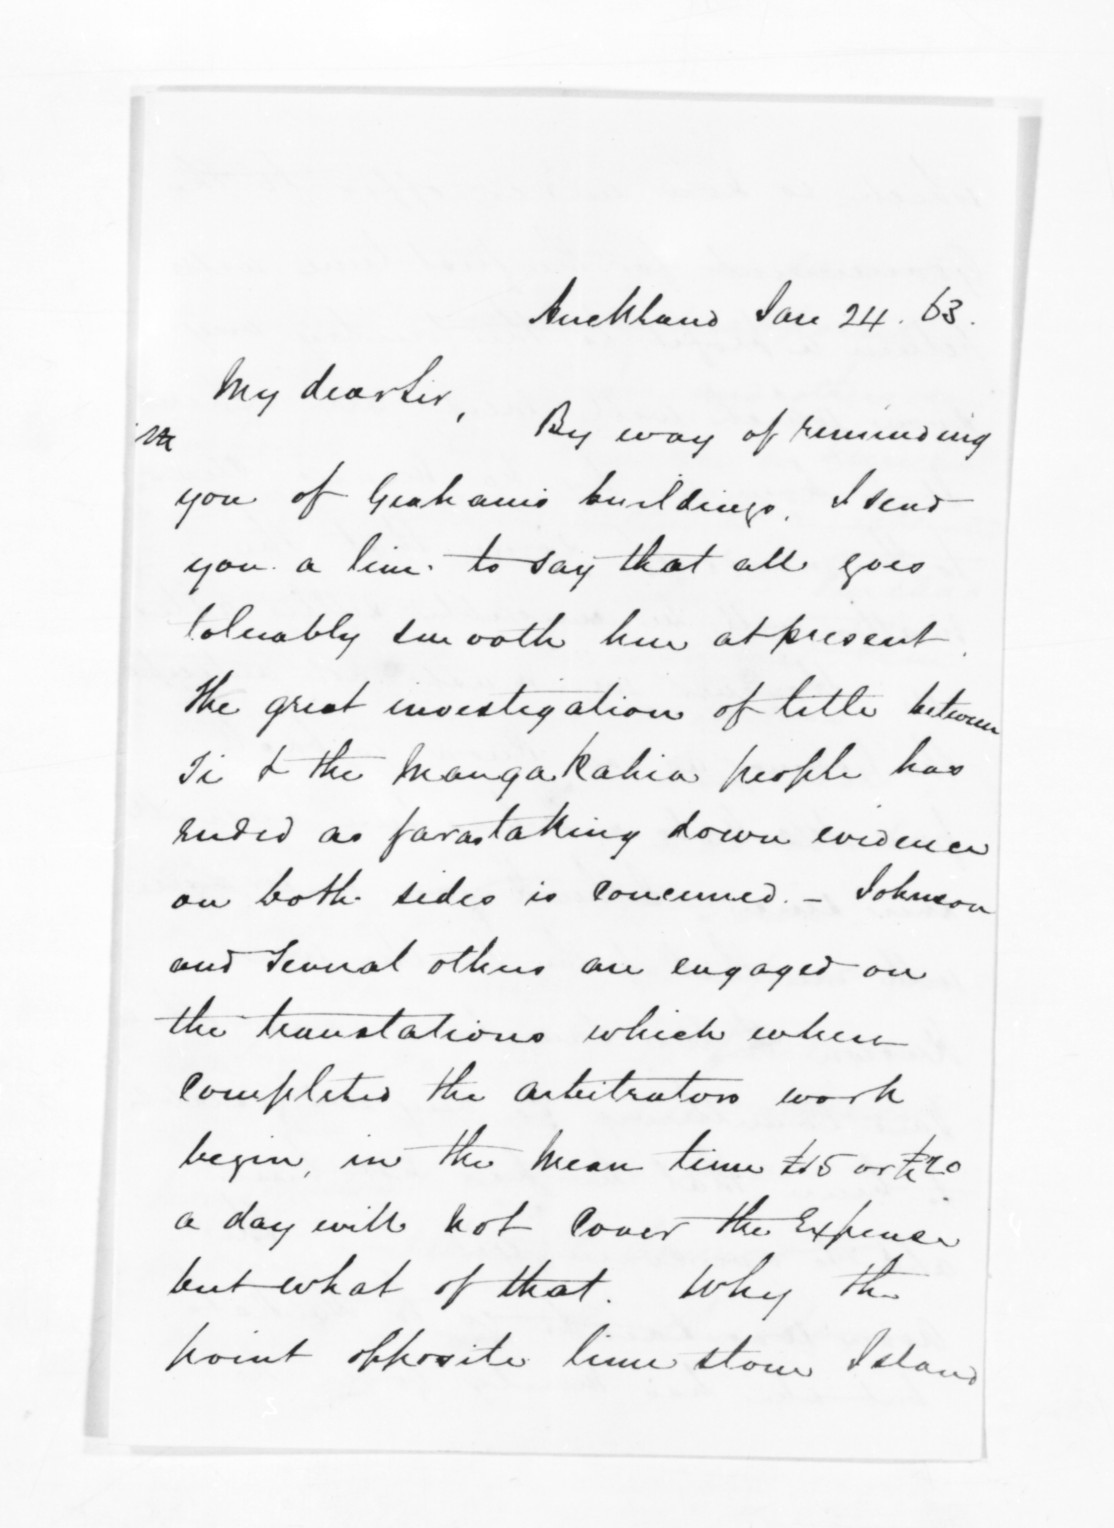 Auckland Jan 24. 63.
My dear Sir,
By way of reminding
you of Grahams buildings. I send
you a line to say that all goes
tolerably smooth here at present.
The great investigation of title between
Ti & the Mangakahia people has
ended as far as taking down evidence
on both sides is concerned. - Johnson
and several others are engaged on
the translations which when
completed the arbitrators work
begin, in the mean time £15 or £20
a day will not cover the expense
but what of that. Why the
point opposite lime stone Island